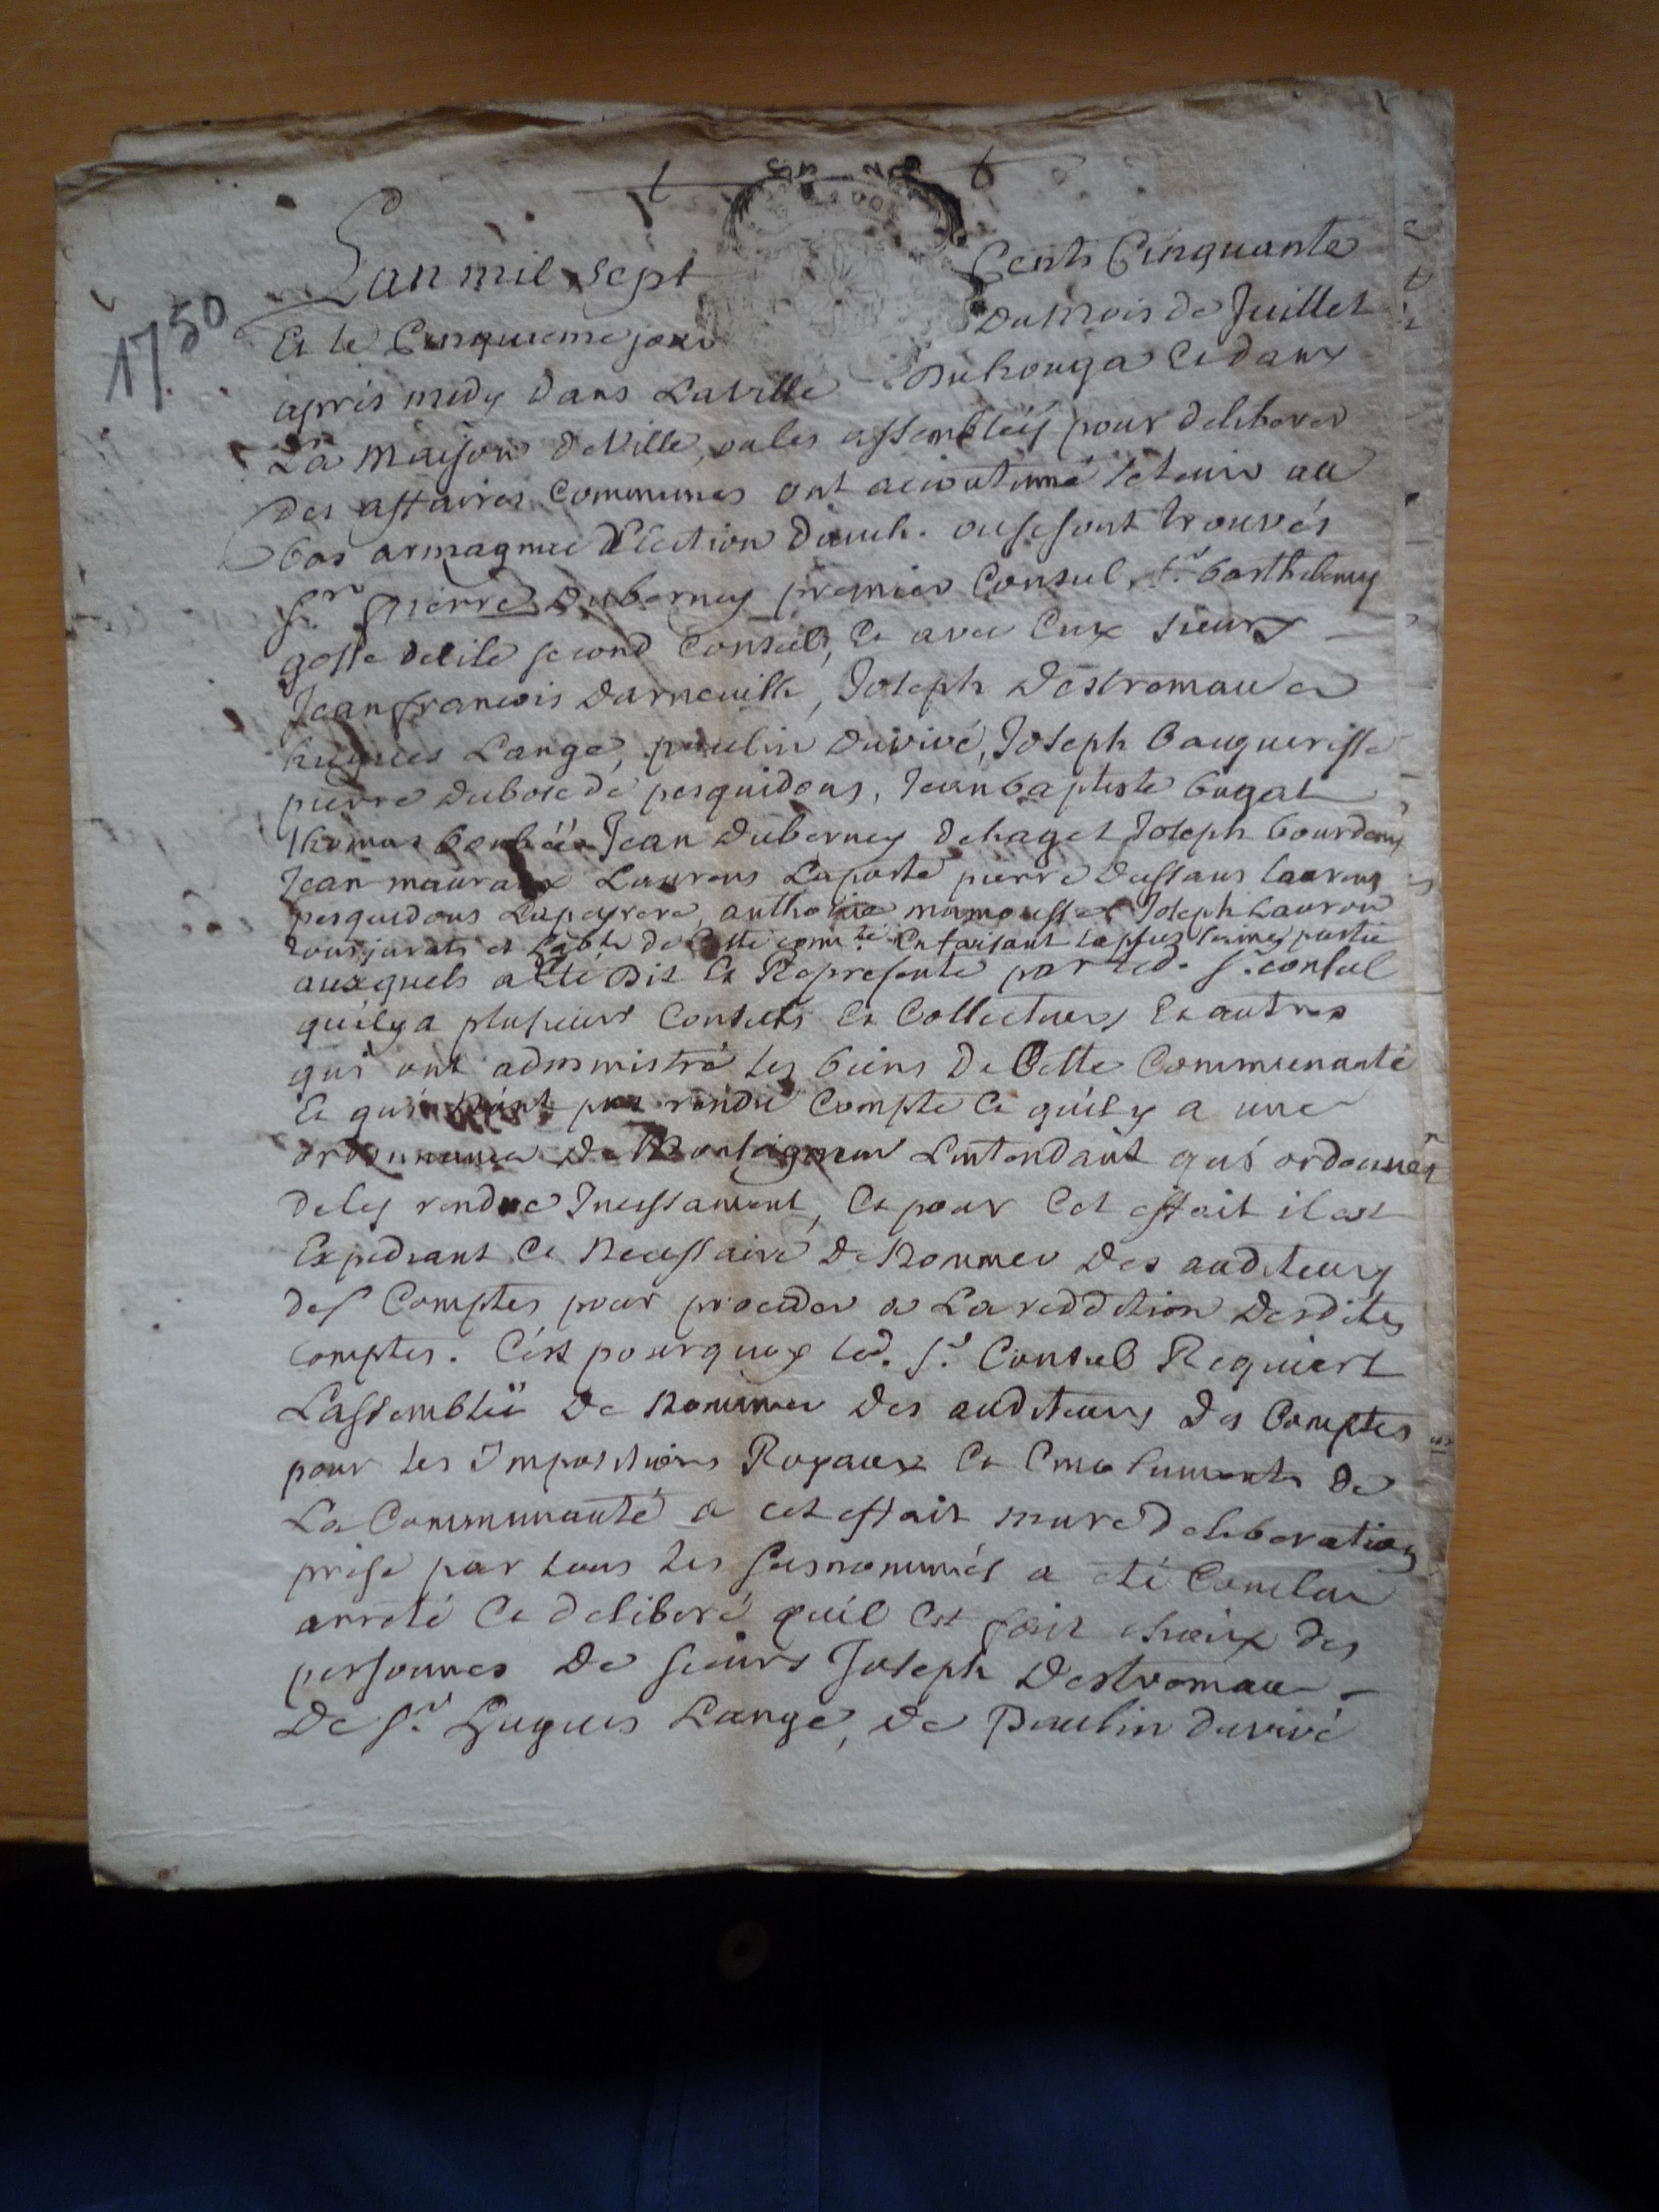 1750
Lan mil sept Cents Cinquante
Et le Cinquieme jour Du Mois de Juillet
aprés midy dans La Ville Du houga Et dans
La Maison de Ville, ou les assembleés pour deliberer
des affaires Communes ont acoutumé se tenir au
bas armagnac Election Dauch. ou se sont trouvés
Sr. Pierre Duberney premier Consul, Sr. barthelemy
gosse second Consul, Et avec Eux sieurs
Jean francois Darneuilh, Joseph Destromau
hugues Lange, paulin Duvivé, Joseph
pierre Dubosc de pesquidous, Jean baptiste bugat
Thomas Jean Duberney de haget Joseph
Jean Laurens Laporte pierre Dussans Laurens
pesquidous Lapeyrere, Joseph Lauron
tous jurats et de Cette comte. En faisant la plus partie
auxquels a Eté Dit Et Represente par led. Sr. consul
quil y a plusieurs Consuls Et Collecteurs Et autres
qui ont administré les biens De Cette Communauté
Et qui nont pas rendu Compte Et quil y a une
ordonnance De Monseigneur Lintendant qui ordonne
de les rendre Incessament, Et pour Cet effait il est
Expediant Et Necessaire De Nommer Des auditeurs
des Comptes pour proceder a La reddition Desdites
comptes. Cest pourquoy led. Sr. Consul Requiert
Lassembleë De Nommer des auditeurs des Comptes
pour les Impositions Royaux Et Emoluments de
La Communauté a cet effait mure deliberation
prise par tous les susnommés a eté Conclu
arreté Et deliberé quil Est fait choix des
personnes De sieurs Joseph Destromau
De Sr. Hugues Lange, de Paulin duvivé